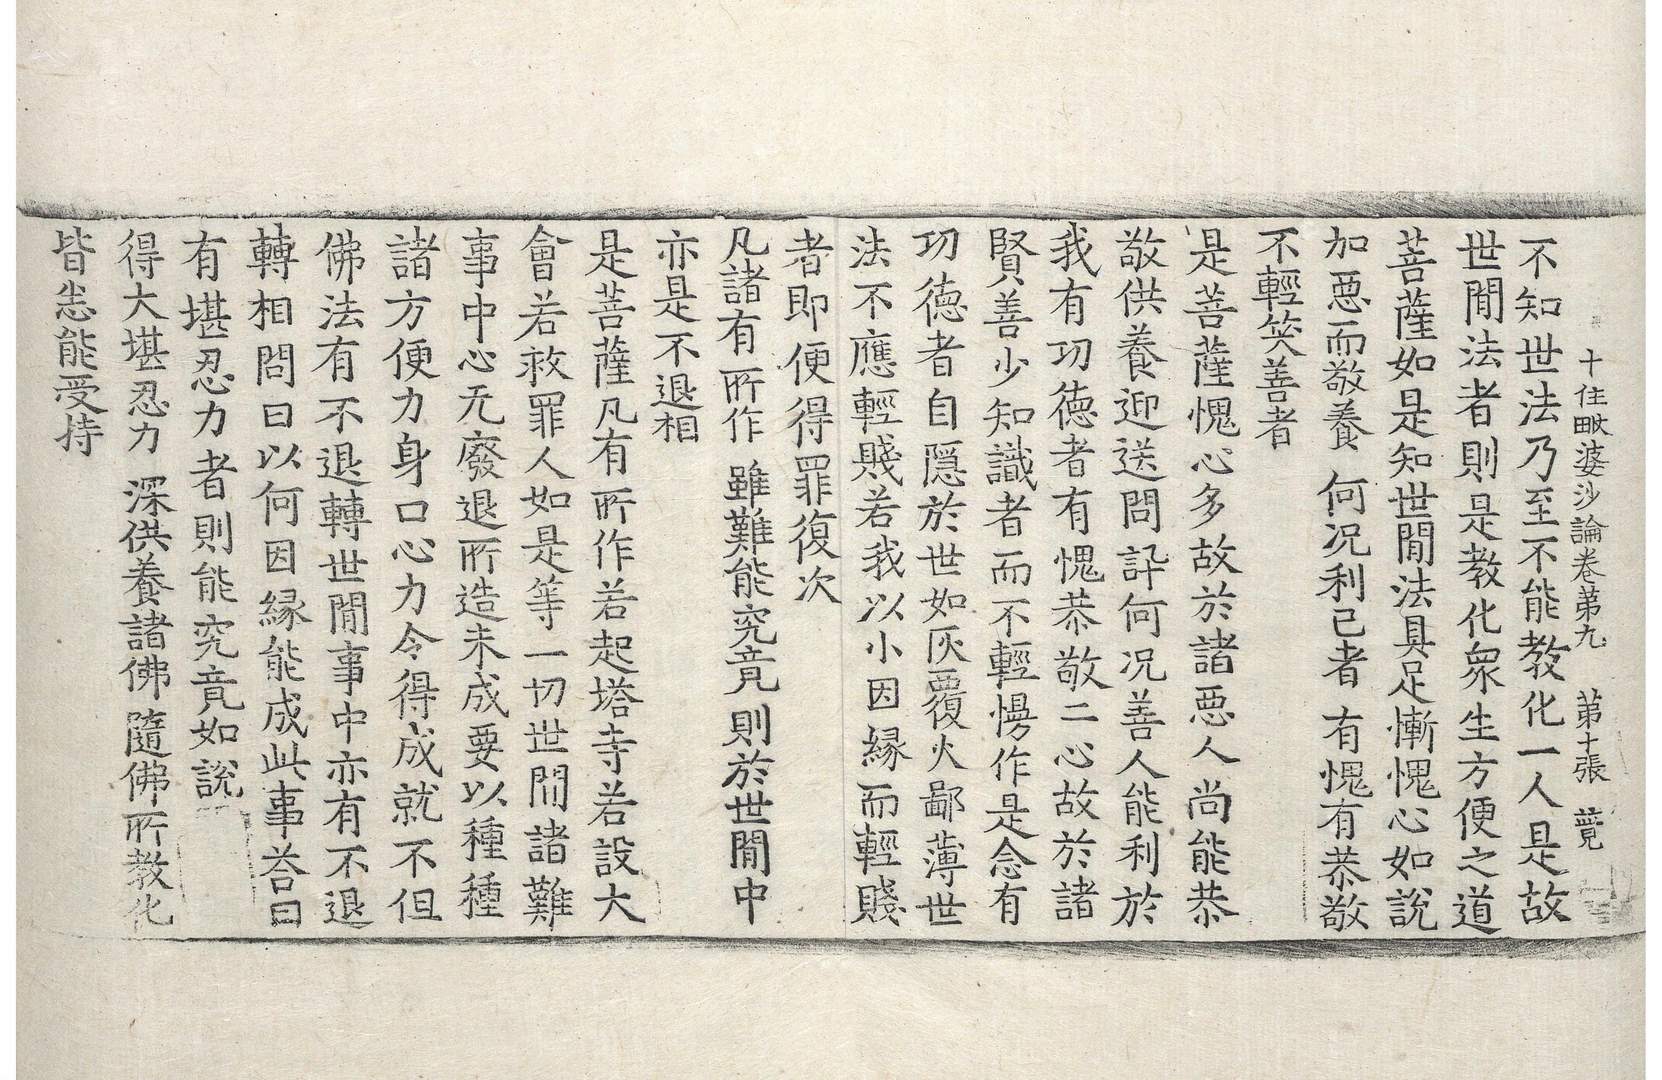 十住毗婆沙論卷苐九 苐十張 競
不知世法乃至不能教化一人是故
世閒法者則是教化衆生方便之道
菩薩如是知世閒法具足慚愧心如說
加惡而敬養 何况利已者 有愧有恭敬
不輕笑善者
是菩薩愧心多故於諸惡人尚能恭
敬供養迎送問訊何况善人能利於
我有功德者有愧恭敬二心故於諸
賢善少知識者而不輕慢作是念有
功德者自隱於世如灰覆火鄙薄世
法不應輕賤若我以小因緣而輕賤
者即便得罪復次
凡諸有所作 雖難能究竟 則於世閒中
亦是不退相
是菩薩凡有所作若起塔寺若設大
會若救罪人如是等一切世閒諸難
事中心无廢退所造未成要以種種
諸方便力身口心力令得成就不但
佛法有不退轉世閒事中亦有不退
轉相問曰以何因緣能成此事荅曰
有堪忍力者則能究竟如說
得大堪忍力 深供養諸佛 隨佛所教化
皆悉能受持